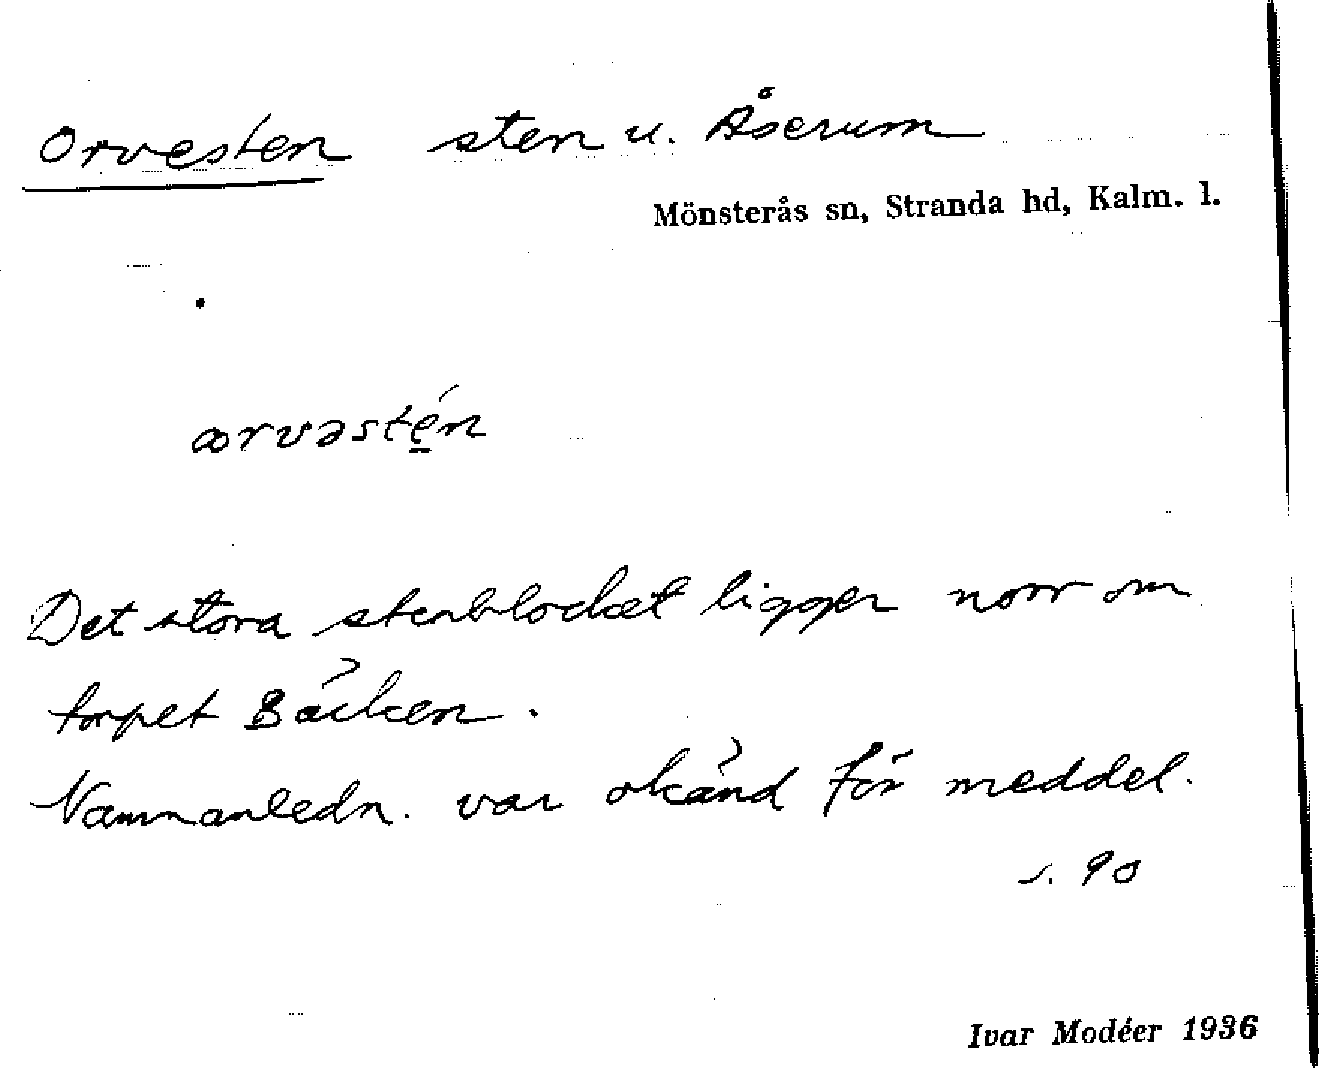 Orvesten sten u. Åserum
Mönsterås sn, Stranda hd, Kalm. l.
ærvəsté̱n
Det stora stenblocket ligger norr om
torpet Bäcken.
Namnanledn. var okänd för meddel.
s. 90
Ivar Modéer 1936